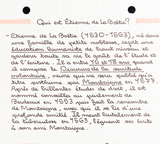 Qui est Étienne de la Boétie?
- Etienne de la Boétie (1530-1563), né dans
une famille de petits nobles, reçoit une
éducation humaniste de haut niveau et
gardera toute sa vie le goût de l'étude et
de l'écriture. Il a entre 16 et 18 ans quand
il compose le Discours de la servitude
volontaire, œuvre qui ne sera publiée qu'à
titre posthume par Montaigne en
Après de brillantes études de droit, il est
nommé conseiller au parlement de
Bordeaux en 1553 que fait la rencontre
de Montaigne, avec qui il se lie d'une
profonde amitié. Il meurt brutalement de
en 1563, léguant ses écrits
à son ami Montaigne